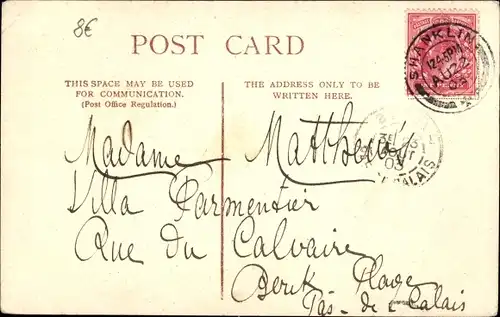 8€
POST CARD
THIS SPACE MAY BE USED
FOR COMMUNICATION.
(Post Office Regulation.)
THE ADDRESS ONLY TO BE
WRITTEN HERE.
SHANKLIN
12.45PM
AU 22
03
CALAIS
Madame Mattheui
Villa Parmentier
Rue du Calvaire
Berck Plage
Pas-de-Calais